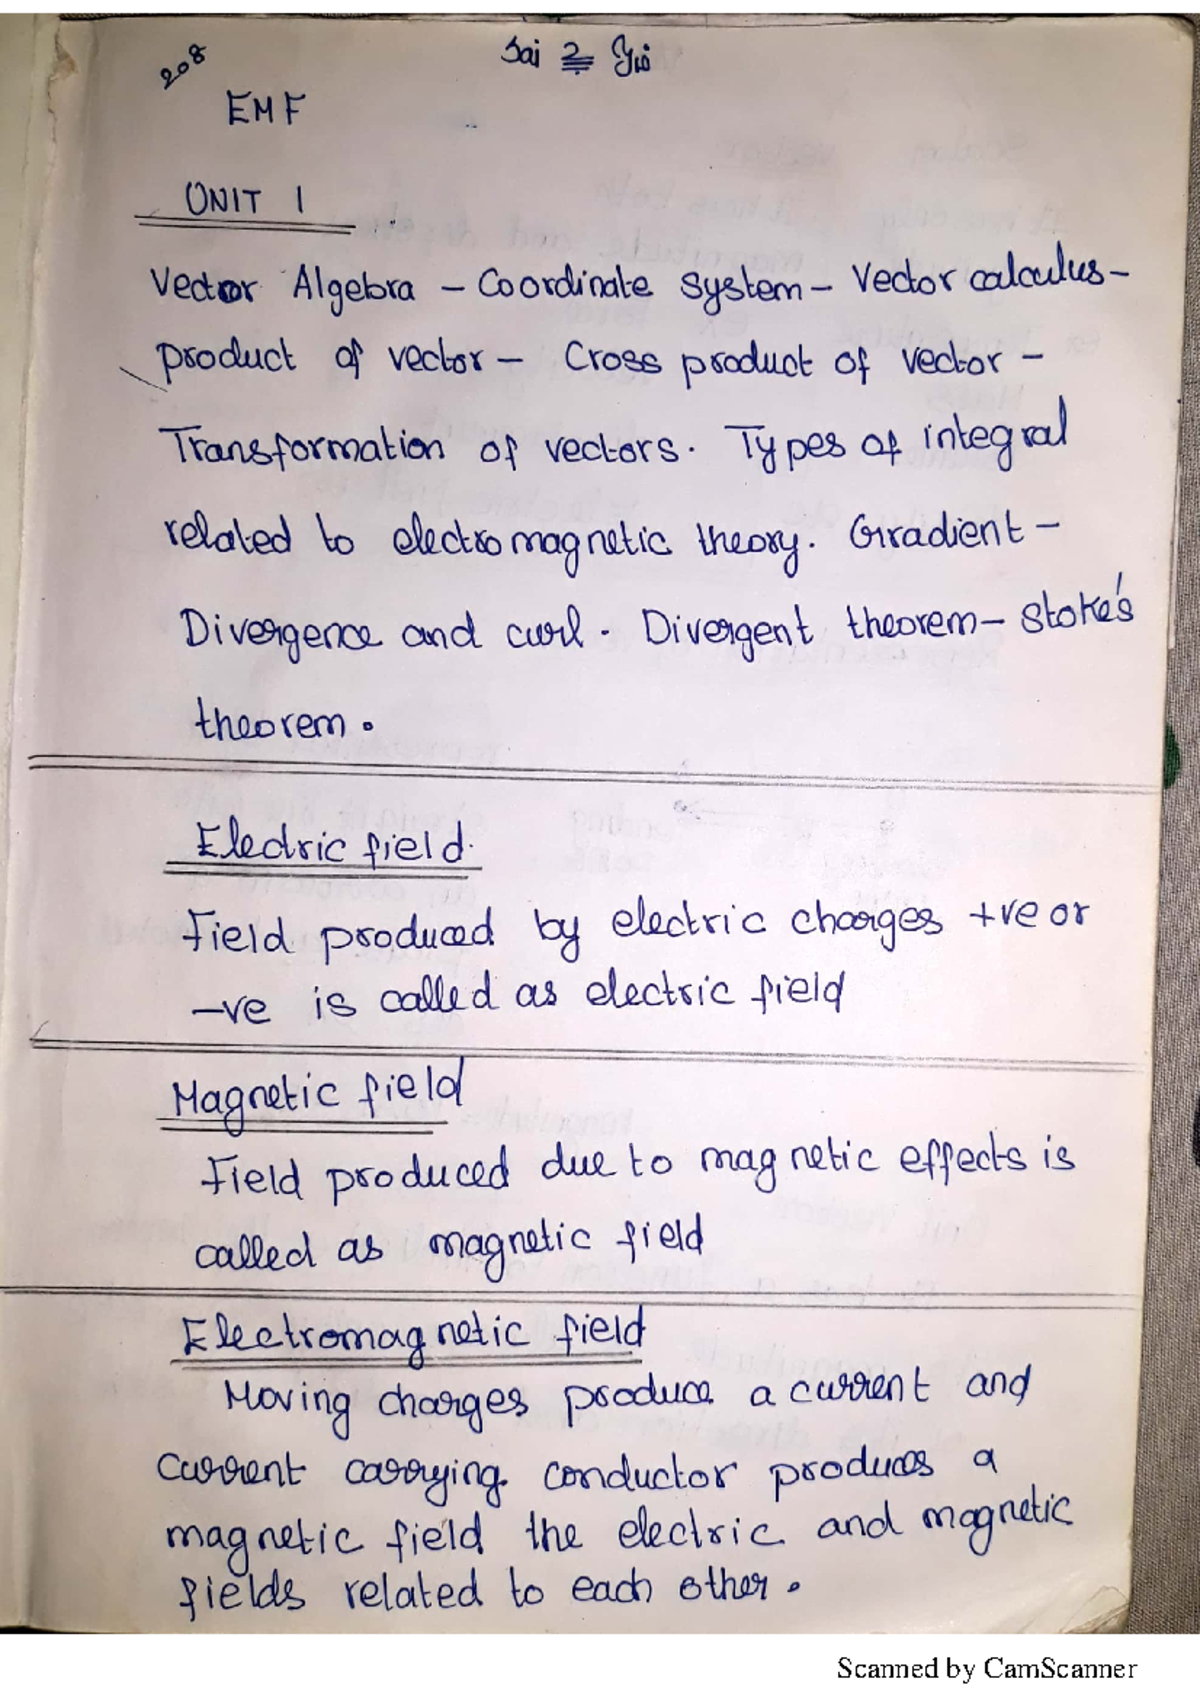 208
Sai
EMF
UNIT 1
Vector Algebra - Coordinate system - Vector calculus -
product of vector - Cross product of vector -
Transformation of vectors. Types of integral
related to electromagnetic theory. Gradient -
Divergence and curl. Divergent theorem - Stoke's
theorem.
Electric field.
Field produced by electric charges +ve or
-ve is called as electric field
Magnetic field
Field produced due to magnetic effects is
called as magnetic field
Electromagnetic field
Moving charges produce a current and
current carrying conductor produces a
magnetic field the electric and magnetic
fields related to each other.
Scanned by CamScanner